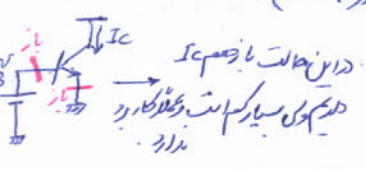 باز
Ic
باز
در این حالت باز هم Ic
داریم ولی بسیار کم است و عملاً کاربرد
ندارد.